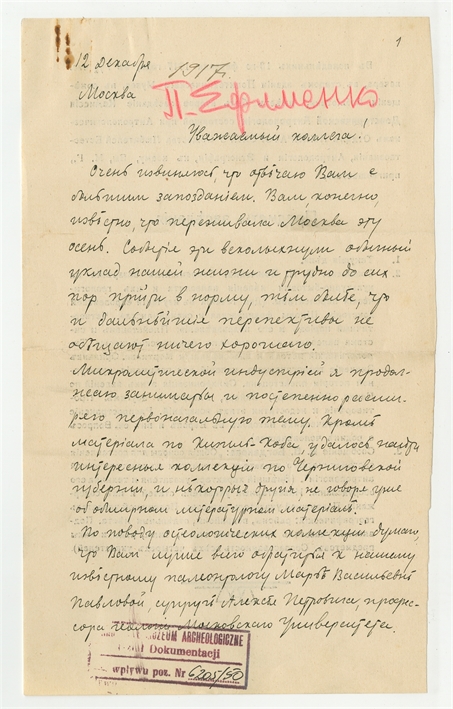 1
12 декабря
1917
Москва
П. Ефименко
Уважаемый коллега!
Очень извиняюсь, что отвѣчаю Вам с
большим запозданіем. Вам, конечно,
извѣстно, что переживала Москва эту
осень. Событія эти всколыхнули обычный
уклад нашей жизни и трудно до сих
пор прійти в норму, тѣм болѣе, что
и дальнѣйшіе перспективы не
обѣщают ничего хорошаго.
Микролитической индустріей я продол-
жаю заниматься и постепенно расши-
ряю первоначальную тему. Кромѣ
матеріала по Кизил-Коба, удалось найти
интересныя коллекціи по Черниговской
губерніи, и нѣкоторыя другія, не говоря уже
об обширном литературном матеріалѣ.
По поводу остеологических коллекций думаю,
что Вам лучше всего обратиться к нашему
извѣстному палеонтологу Марьѣ Васильевнѣ
Павловой, супругѣ Алексѣя Петровича, профес-
сора Московскаго Университета.
MUZEUM ARCHEOLOGICZNE
Dokumentacji
wpływu poz. Nr 6205/50